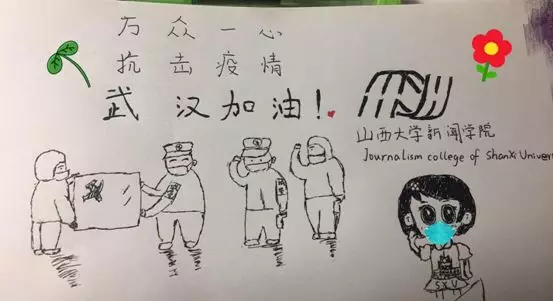 万众一心
抗击疫情
武汉加油！
山西大学新闻学院
Journalism college of ShanXi Univer
SXU